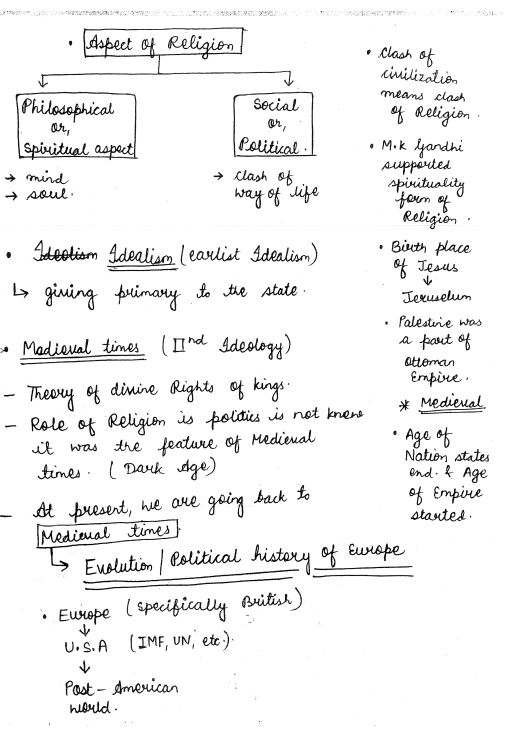 • Aspect of Religion
Philosophical
or,
Spiritual aspect
→ mind
→ soul.
Social
or,
Political.
→ clash of
way of life
• Idealism Idealism (earlist Idealism)
↳ giving primary to the state.
• Medieval times (IInd Ideology)
– Theory of divine Rights of kings.
– Role of Religion is politics is not knew
it was the feature of Medieval
times. (Dark Age)
– At present, we are going back to
Medieval times
↳ Evolution / Political history of Europe
• Europe (specifically British)
↓
U.S.A (IMF, UN, etc.).
↓
Post – American
world.
• Clash of
civilization
means clash
of Religion.
• M.K Gandhi
supported
spirituality
form of
Religion.
• Birth place
of Jesus
↓
Jeruselum
• Palestine was
a part of
Ottoman
Empire.
* Medieval
• Age of
Nation states
end. & Age
of Empire
started.